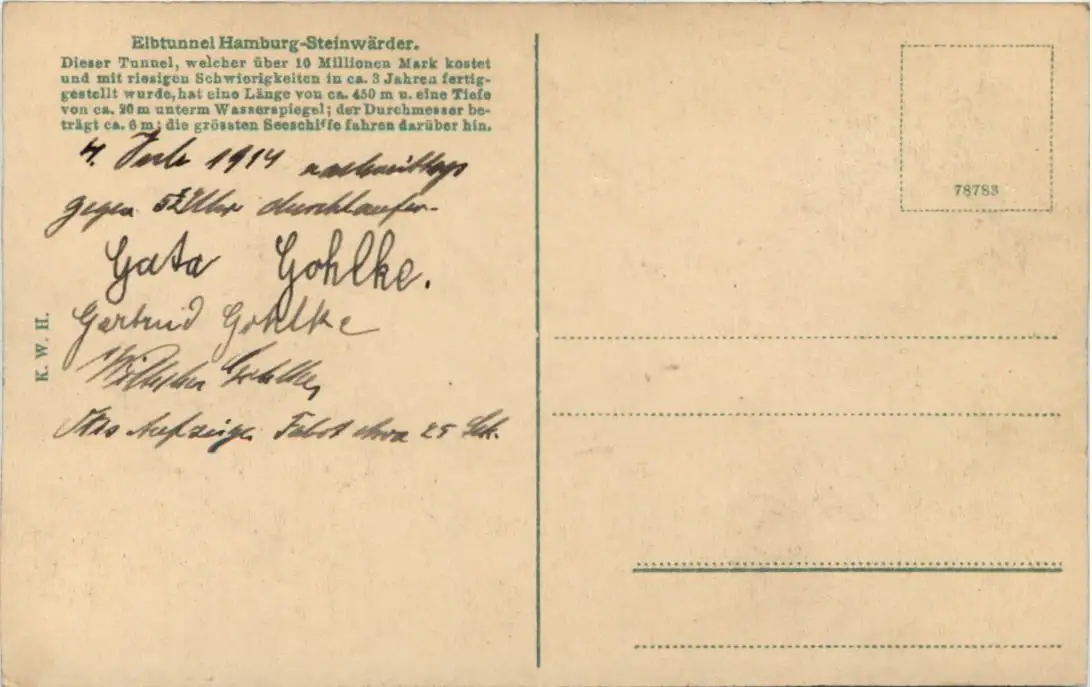 Elbtunnel Hamburg-Steinwärder.
Dieser Tunnel, welcher über 10 Millionen Mark kostet
und mit riesigen Schwierigkeiten in ca. 3 Jahren fertig-
gestellt wurde, hat eine Länge von ca. 450 m u. eine Tiefe
von ca. 20 m unterm Wasserspiegel; der Durchmesser be-
trägt ca. 6 m; die grössten Seeschiffe fahren darüber hin.
4. 1914 nachmittags
gegen 5½ Uhr durchlaufen.
Gata Gohlke.
Gertrud Gohlke
Wilhelm Gohlke
Fahrt etwa 25 Sek.
K. W. H.
78783